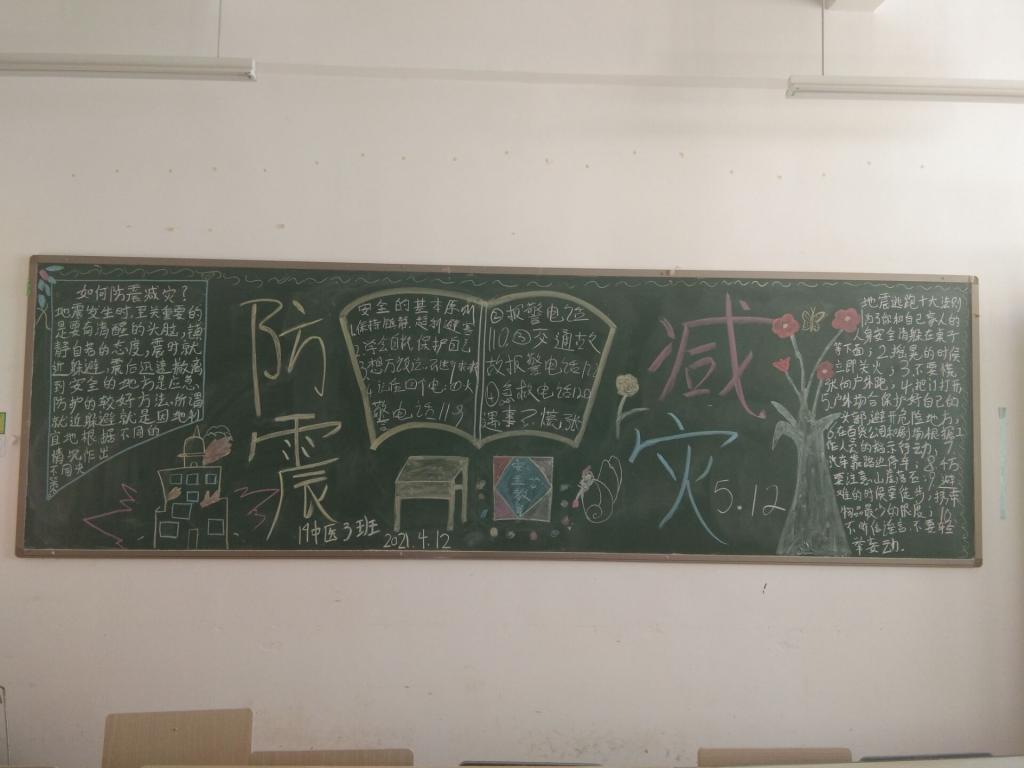 如何防震减灾?
地震发生时,至关重要的
是要有清醒的头脑,镇
静自若的态度,震时就
近躲避,震后迅速撤离
到安全的地方是应急
防护的较好方法。所谓
就近躲避,就是因地制
宜地根据不同的
情况作出
不同决
防震
19中医3班
2021.4.12
安全的基本原则
学会自我保护自己
警电话119
②报警电话
110③交通故
故报警电话122
④急救电话120
遇事不慌张
安全教育
减灾
5.12
地震逃跑十大法则
为了你和自己家人的
人身安全请躲在桌子
等下面;2.摇晃的时候
立即关火;3.不要慌
张的户外跑;4.把门打开
5.户外场合保护好自己的
头部避开危险地方,
作人员的指示行动;7.
难的时候要徒步,携带
物品最少的限度;10.
不听信谣言,不要轻
举妄动.